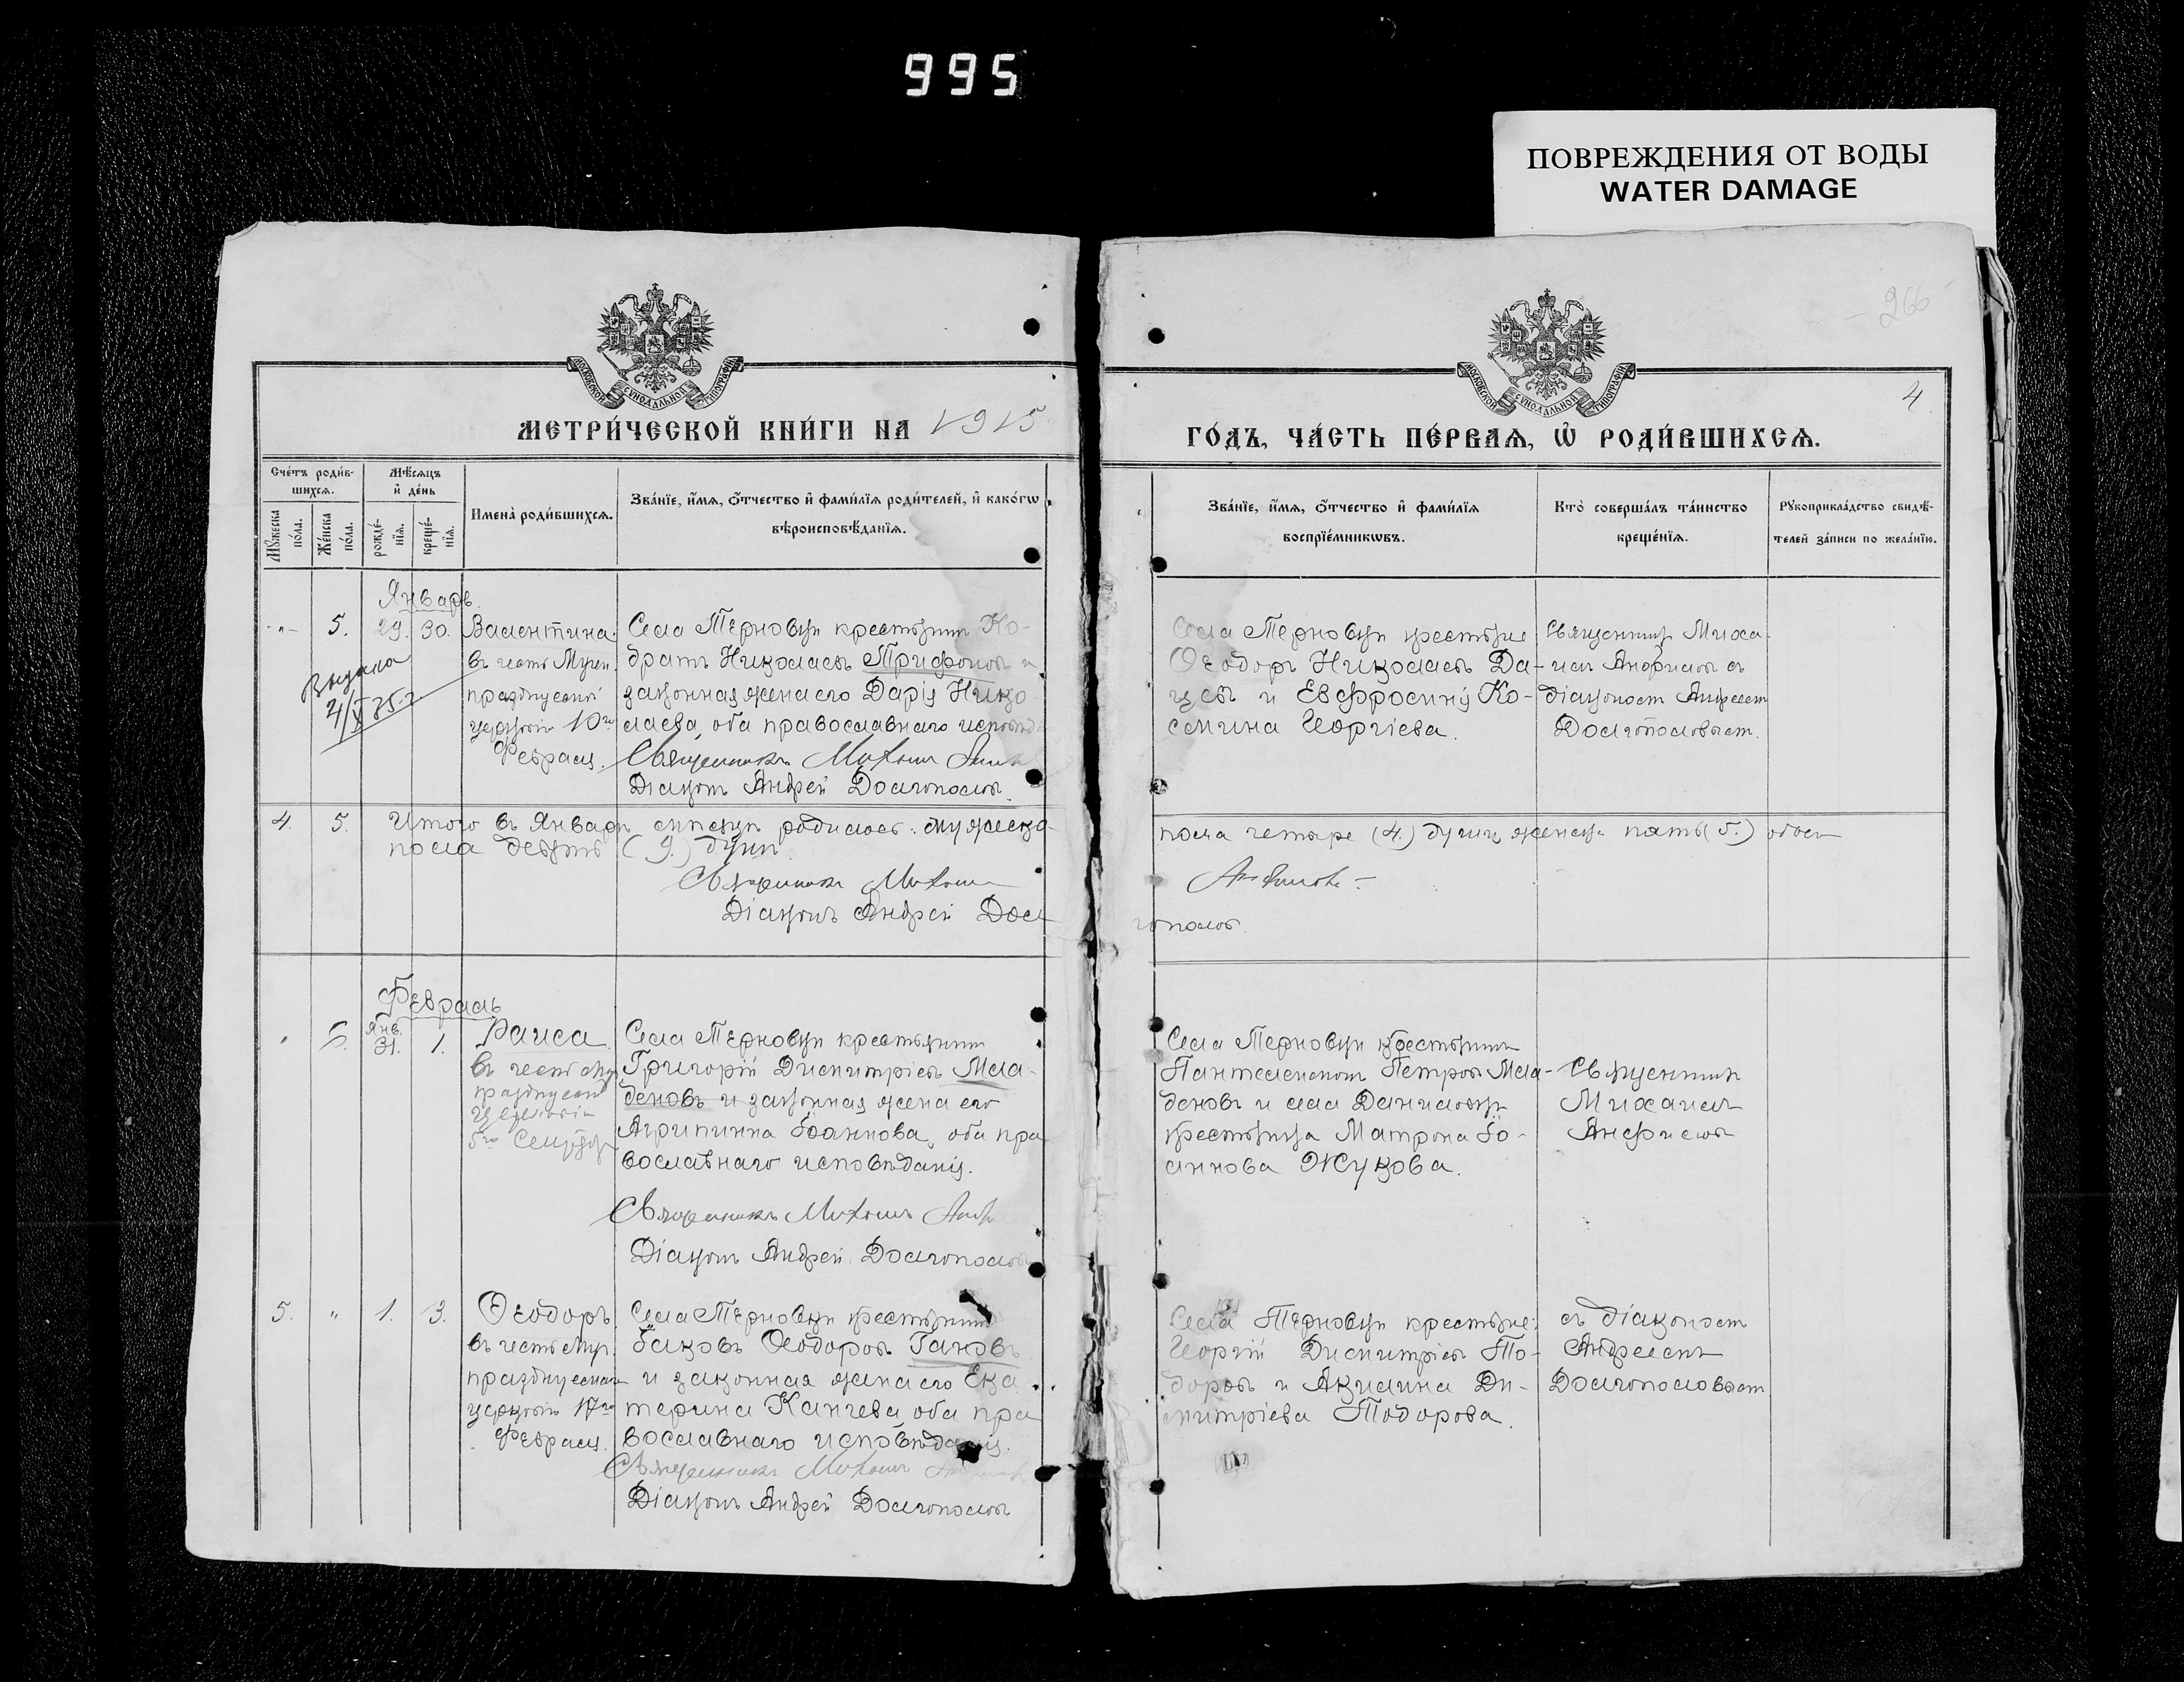 995
ПОВРЕЖДЕНИЯ ОТ ВОДЫ
WATER DAMAGE
266
4
МОСКОВСКОЙ СѴНОДАЛЬНОЙ ТИПОГРАФІИ
МОСКОВСКОЙ СѴНОДАЛЬНОЙ ТИПОГРАФІИ
МЕТРИ́ЧЕСКОЙ КНИ́ГИ НА 1915
ГО́ДЪ, ЧА́СТЬ ПЕ́РВАЯ, Ѡ҆ РОДИ́ВШИХСЯ.
Сче́тъ роди́в-
шихся.
Мѣ́сяцъ
и҆ де́нь
Мꙋ́жеска по́ла.
Же́нска по́ла.
рожде́-
нїя.
креще́-
нїя.
Имена̀ роди́вшихся.
Зва́нїе, и҆́мя, ѻ҆́тчество и҆ фами́лїя роди́телей, и҆ како́гѡ
вѣроисповѣ́данїя.
Зва́нїе, и҆́мя, ѻ҆́тчество и҆ фами́лїя
воспрїе́мникѡвъ.
Кто̀ соверша́лъ та́инство
креще́нїя.
Рꙋкоприкла́дство свидѣ́-
телей за́писи по жела́нїю.
Январь.
-"- 5. 29. 30. Валентина.
въ честь Мучен.
празднуемой
церковію 10го
Февраля.
Выдана
4/X 35 г
Села Терновки крестьянинъ Ко-
дратъ Николаевъ Трифоновъ и
законная жена его Дарія Нико
лаева, оба православнаго исповѣд
Священникъ Михаилъ
Діаконъ Андрей Долгополовъ.
Села Терновки крестьяне
Ѳеодоръ Николаевъ Да-
цевъ и Евфросинія Ко-
семина Георгіева.
Священникъ Миха-
илъ Анфиловъ съ
діакономъ Андреемъ
Долгополовымъ.
4. 5. Итого въ Январѣ мѣсяцѣ родилось: мужеска-
пола четыре (4.) души, женска пять (5.) обоего
пола девять (9.) душъ.
Священникъ Михаилъ Анфиловъ
Діаконъ Андрей Дол
гополовъ.
Февраль
" 6. Янв.
31. 1. Раиса
въ честь Муч
празднуемой
церковію
5го Сентября
Села Терновки крестьянинъ
Григорій Димитріевъ Мла-
деновъ и законная жена его
Агрипинна Іоаннова, оба пра
вославнаго исповѣданія.
Священникъ Михаилъ Анф
Діаконъ Андрей Долгополовъ
Села Терновки крестьянинъ
Пантелеимонъ Петровъ Мла-
деновъ и села Даниловки
крестьянка Матрона Іо-
аннова Жукова.
Священникъ
Михаилъ
Анфиловъ
5. " 1. 3. Ѳеодоръ
въ честь Муч.
празднуемаго
церковію 17го
Февраля.
Села Терновки крестьянинъ
Іаковъ Ѳеодоровъ Гановъ
и законная жена его Ека
терина Канчева, оба пра
вославнаго исповѣданія.
Священникъ Михаилъ
Діаконъ Андрей Долгополовъ
Села Терновки крестьяне:
Георгій Димитріевъ То-
доровъ и Акилина Ди-
митріева Тодорова.
съ діакономъ
Андреемъ
Долгополовымъ